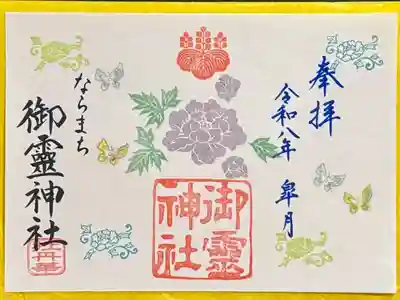 奉拝
令和八年 皐月
御靈神社
ならまち
御靈神社